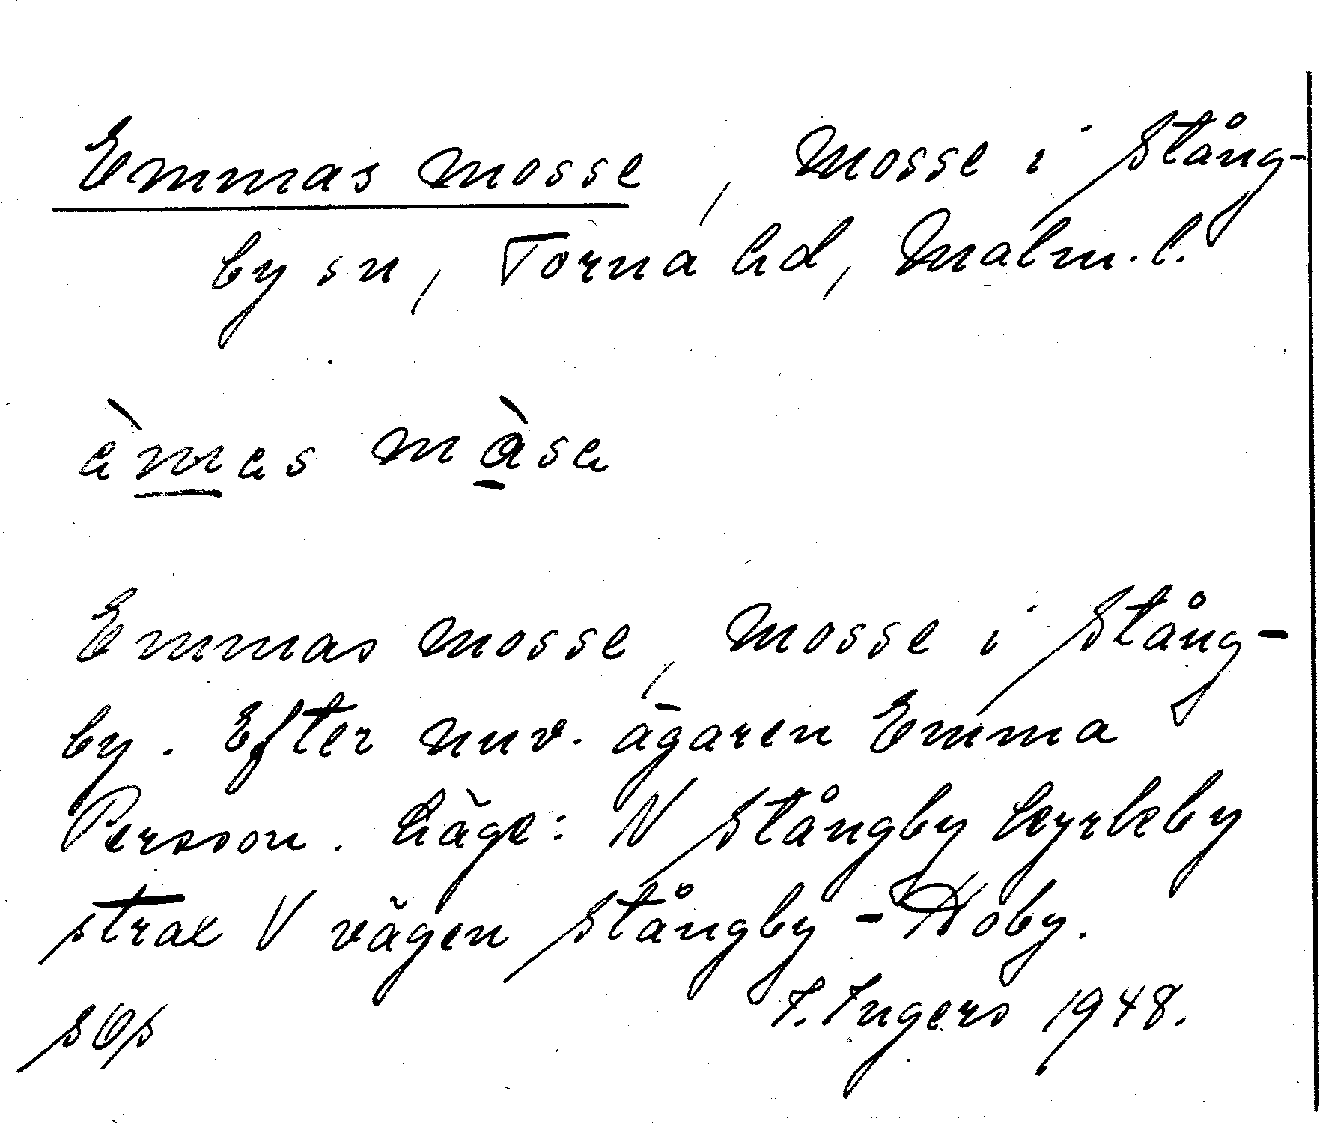 Emmas mosse, Mosse i Stång-
by sn, Torna hd, Malm. l.
àmas màsa
Emmas mosse, Mosse i Stång-
by. Efter nuv. ägaren Emma
Persson. Läge: N Stångby kyrkby
strax V vägen Stångby - Håby.
I. Ingers 1948.